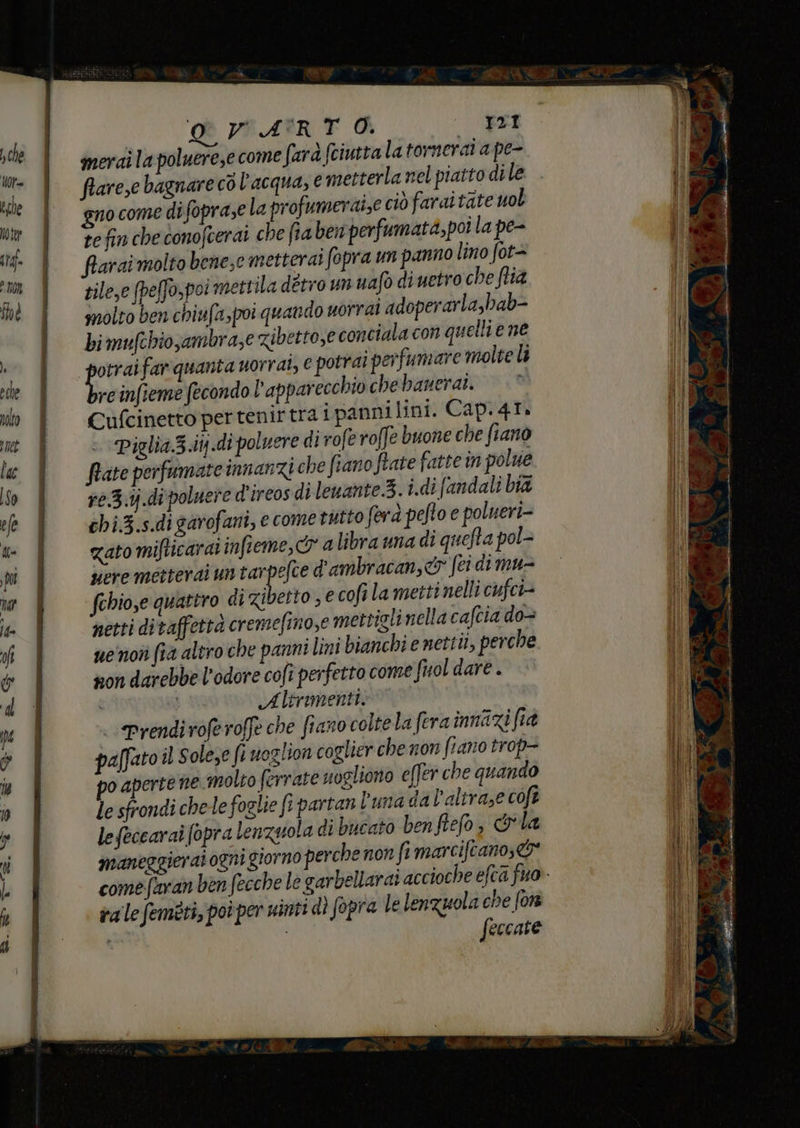 Q V A R T O. 121
merai la poluere,e come ſarà ſciutta la tornerai a pe-
ſtare,e bagnare cō l'acqua, e metterla nel piatto di le
gno come di ſopra,e la profumerai,e ciò farai tāte uol
te fin che conoſcerai che ſia ben perfumata,poi la pe-
ſtarai molto bene,e metterai ſopra un panno lino ſot-
tile,e ſpeſſo,poi mettila dētro un uaſo di uetro che ſtia
molto ben chiuſa,poi quando uorrai adoperarla,hab-
bi muſchio,ambra,e zibetto,e conciala con quelli e ne
potrai far quanta uorrai, e potrai perfumare molte li
bre inſieme ſecondo l'apparecchio che hauerai.
Cuſcinetto per tenir tra i panni lini. Cap. 41.
Piglia.ʒ.iij.di poluere di roſe roſſe buone che ſiano
ſtate perfumate innanzi che ſiano ſtate fatte in polue
re.ʒ.ij.di poluere d'ireos di leuante.ʒ.i.di ſandali biā
chi.ʒ.s.di garofani, e come tutto ſerà peſto e polueri-
zato miſticarai inſieme,& a libra una di queſta pol-
uere metterai un tarpeſce d'ambracan,& ſei di mu-
ſchio,e quattro di zibetto , e coſi la metti nelli cuſci-
netti di taffettà cremeſino,e mettigli nella caſcia do-
ue non ſia altro che panni lini bianchi e nettii, perche
non darebbe l'odore coſi perfetto come ſuol dare .
Altrimenti.
Prendi roſe roſſe che ſiano colte la ſera innāzi ſia
paſſato il Sole,e ſi uoglion coglier che non ſiano trop-
po aperte ne molto ſerrate uogliono eſſer che quando
le sfrondi che le foglie ſi partan l'una da l'altra,e coſi
le ſeccarai ſopra lenzuola di bucato ben ſteſo , & la
maneggierai ogni giorno perche non ſi marciſcano,&
come ſaran ben ſecche le garbellarai accioche eſca fuo-
ra le ſemēti, poi per uinti dì ſopra le lenzuola che ſon
ſeccate